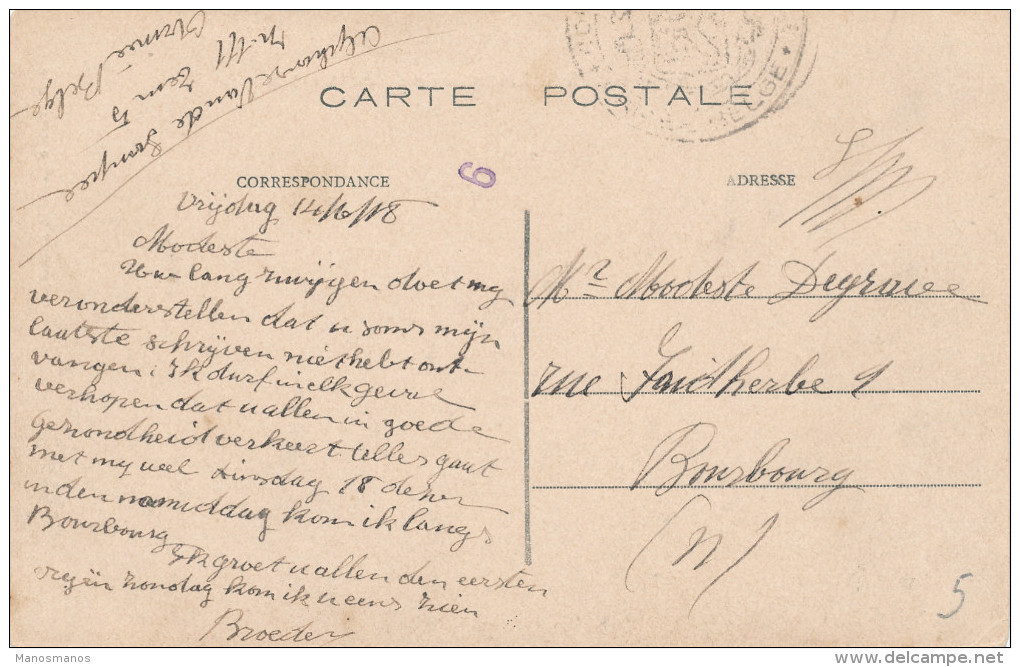 Alphonse Van de
Armée Belge
CARTE POSTALE
BELGE
6
CORRESPONDANCE
ADRESSE
S.M.
Vrijdag 14/6/18
Modeste
Uw lang zwijgen doet my
veronderstellen dat u soms mijn
laatste schrijven niet hebt ont-
vangen. Ik durf in elk geval
verhopen dat u allen in goede
gezondheid verkeert alles gaat
met my wel dinsdag 18 dezer
in den namiddag kom ik langs
Bourbourg
Ik groet u allen den eersten
vryen zondag kom ik u eens zien
Broeder
Mr Modeste Degraeve
rue Faidherbe 9
Bourbourg
(N)
5
Manosmanos
www.delcampe.net